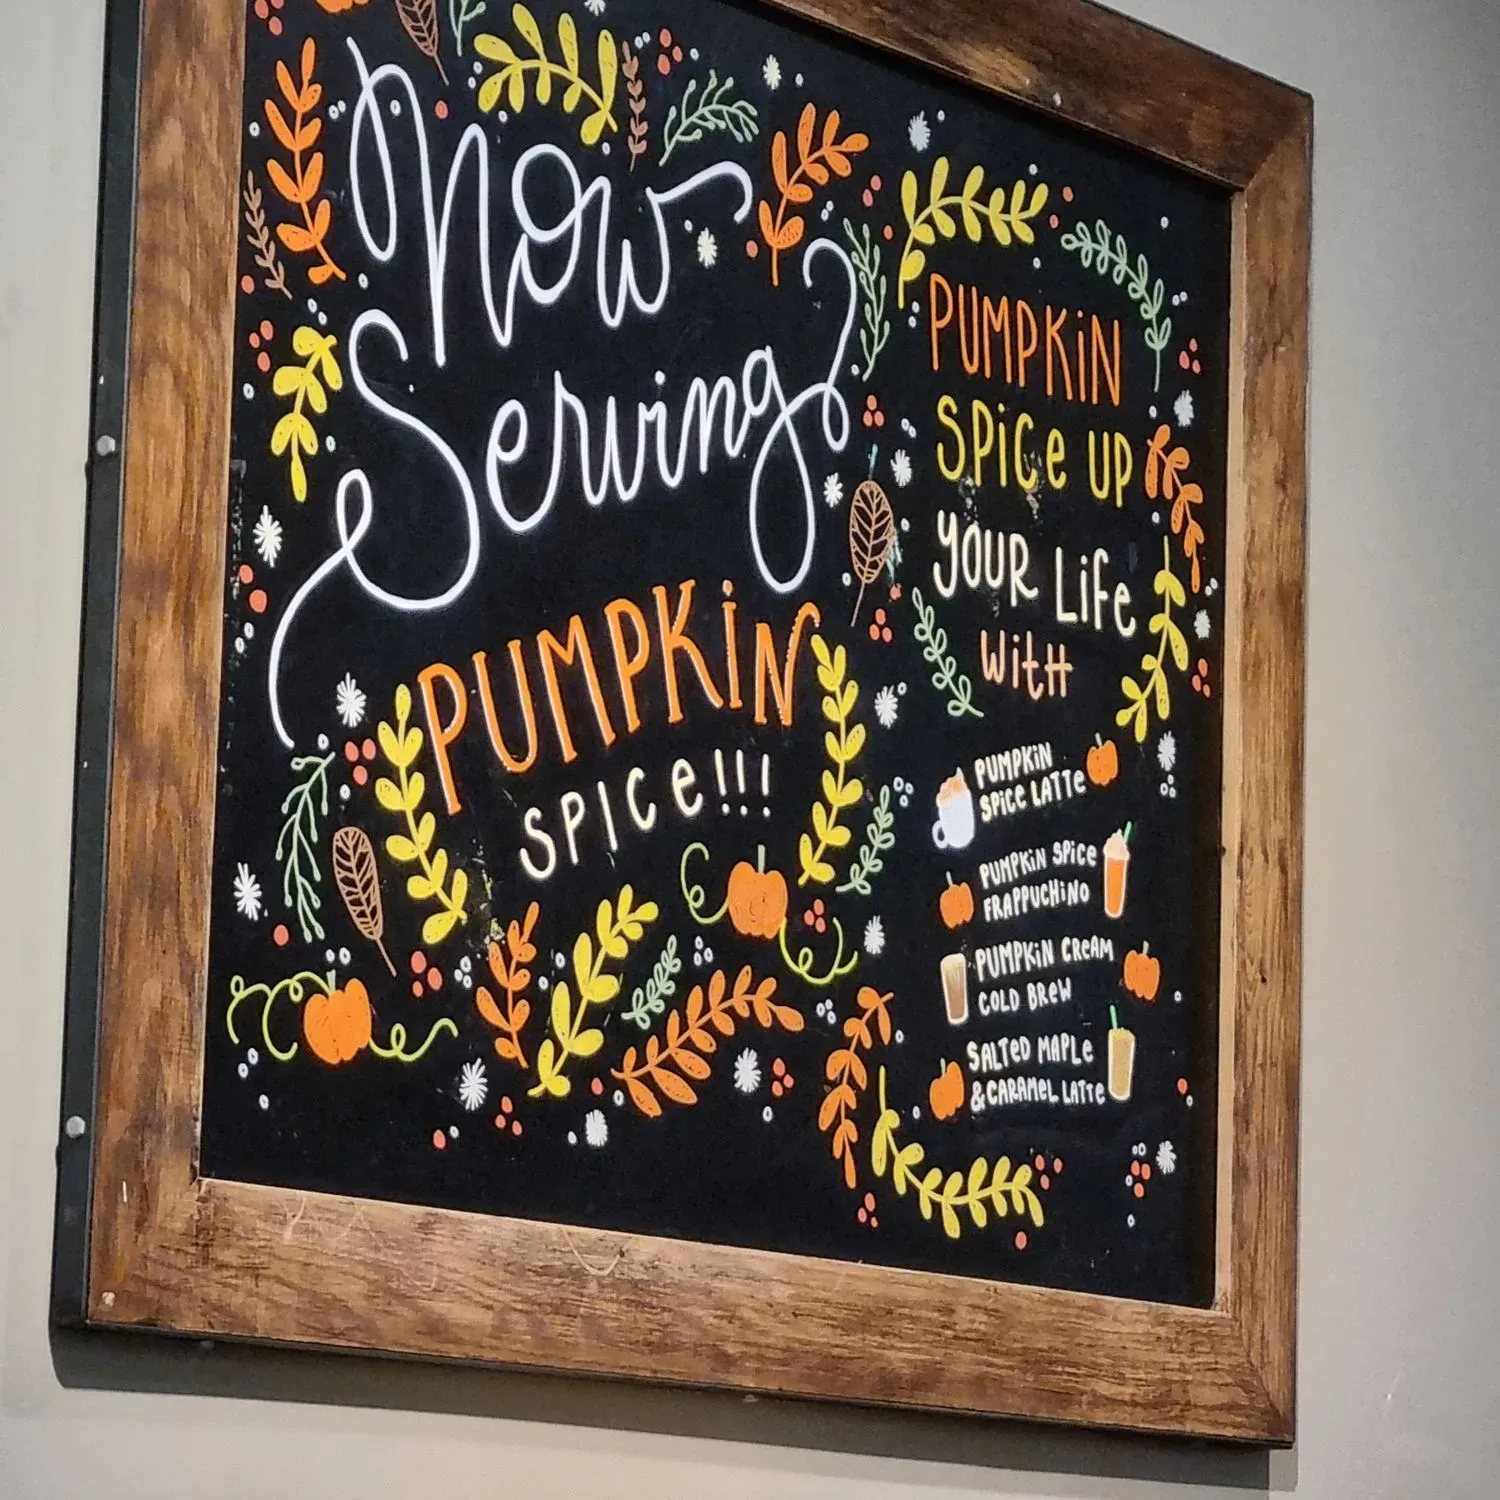 Now
Serving
PUMPKiN
SPICe!!!
PUMPKiN
SPiCe UP
YOUR LiFe
WitH
PUMPKiN
SPiCe LATTe
PUMPKiN SPiCe
FRAPPUCHiNO
PUMPKiN CReAM
COLD BReW
SALTeD MAPLe
& CARAMeL LATTe